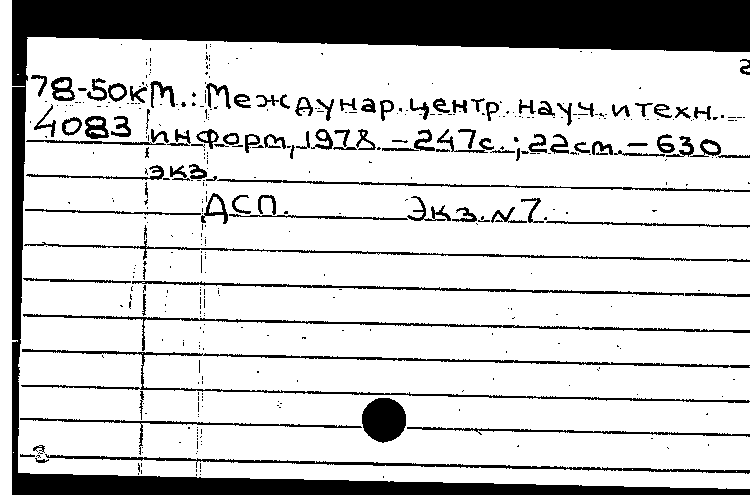 2
78-50к М.: Междунар. центр. науч. и техн.
4083 информ, 1978 - 247с.; 22см. - 630
экз.
ДСП. Экз. N 7.